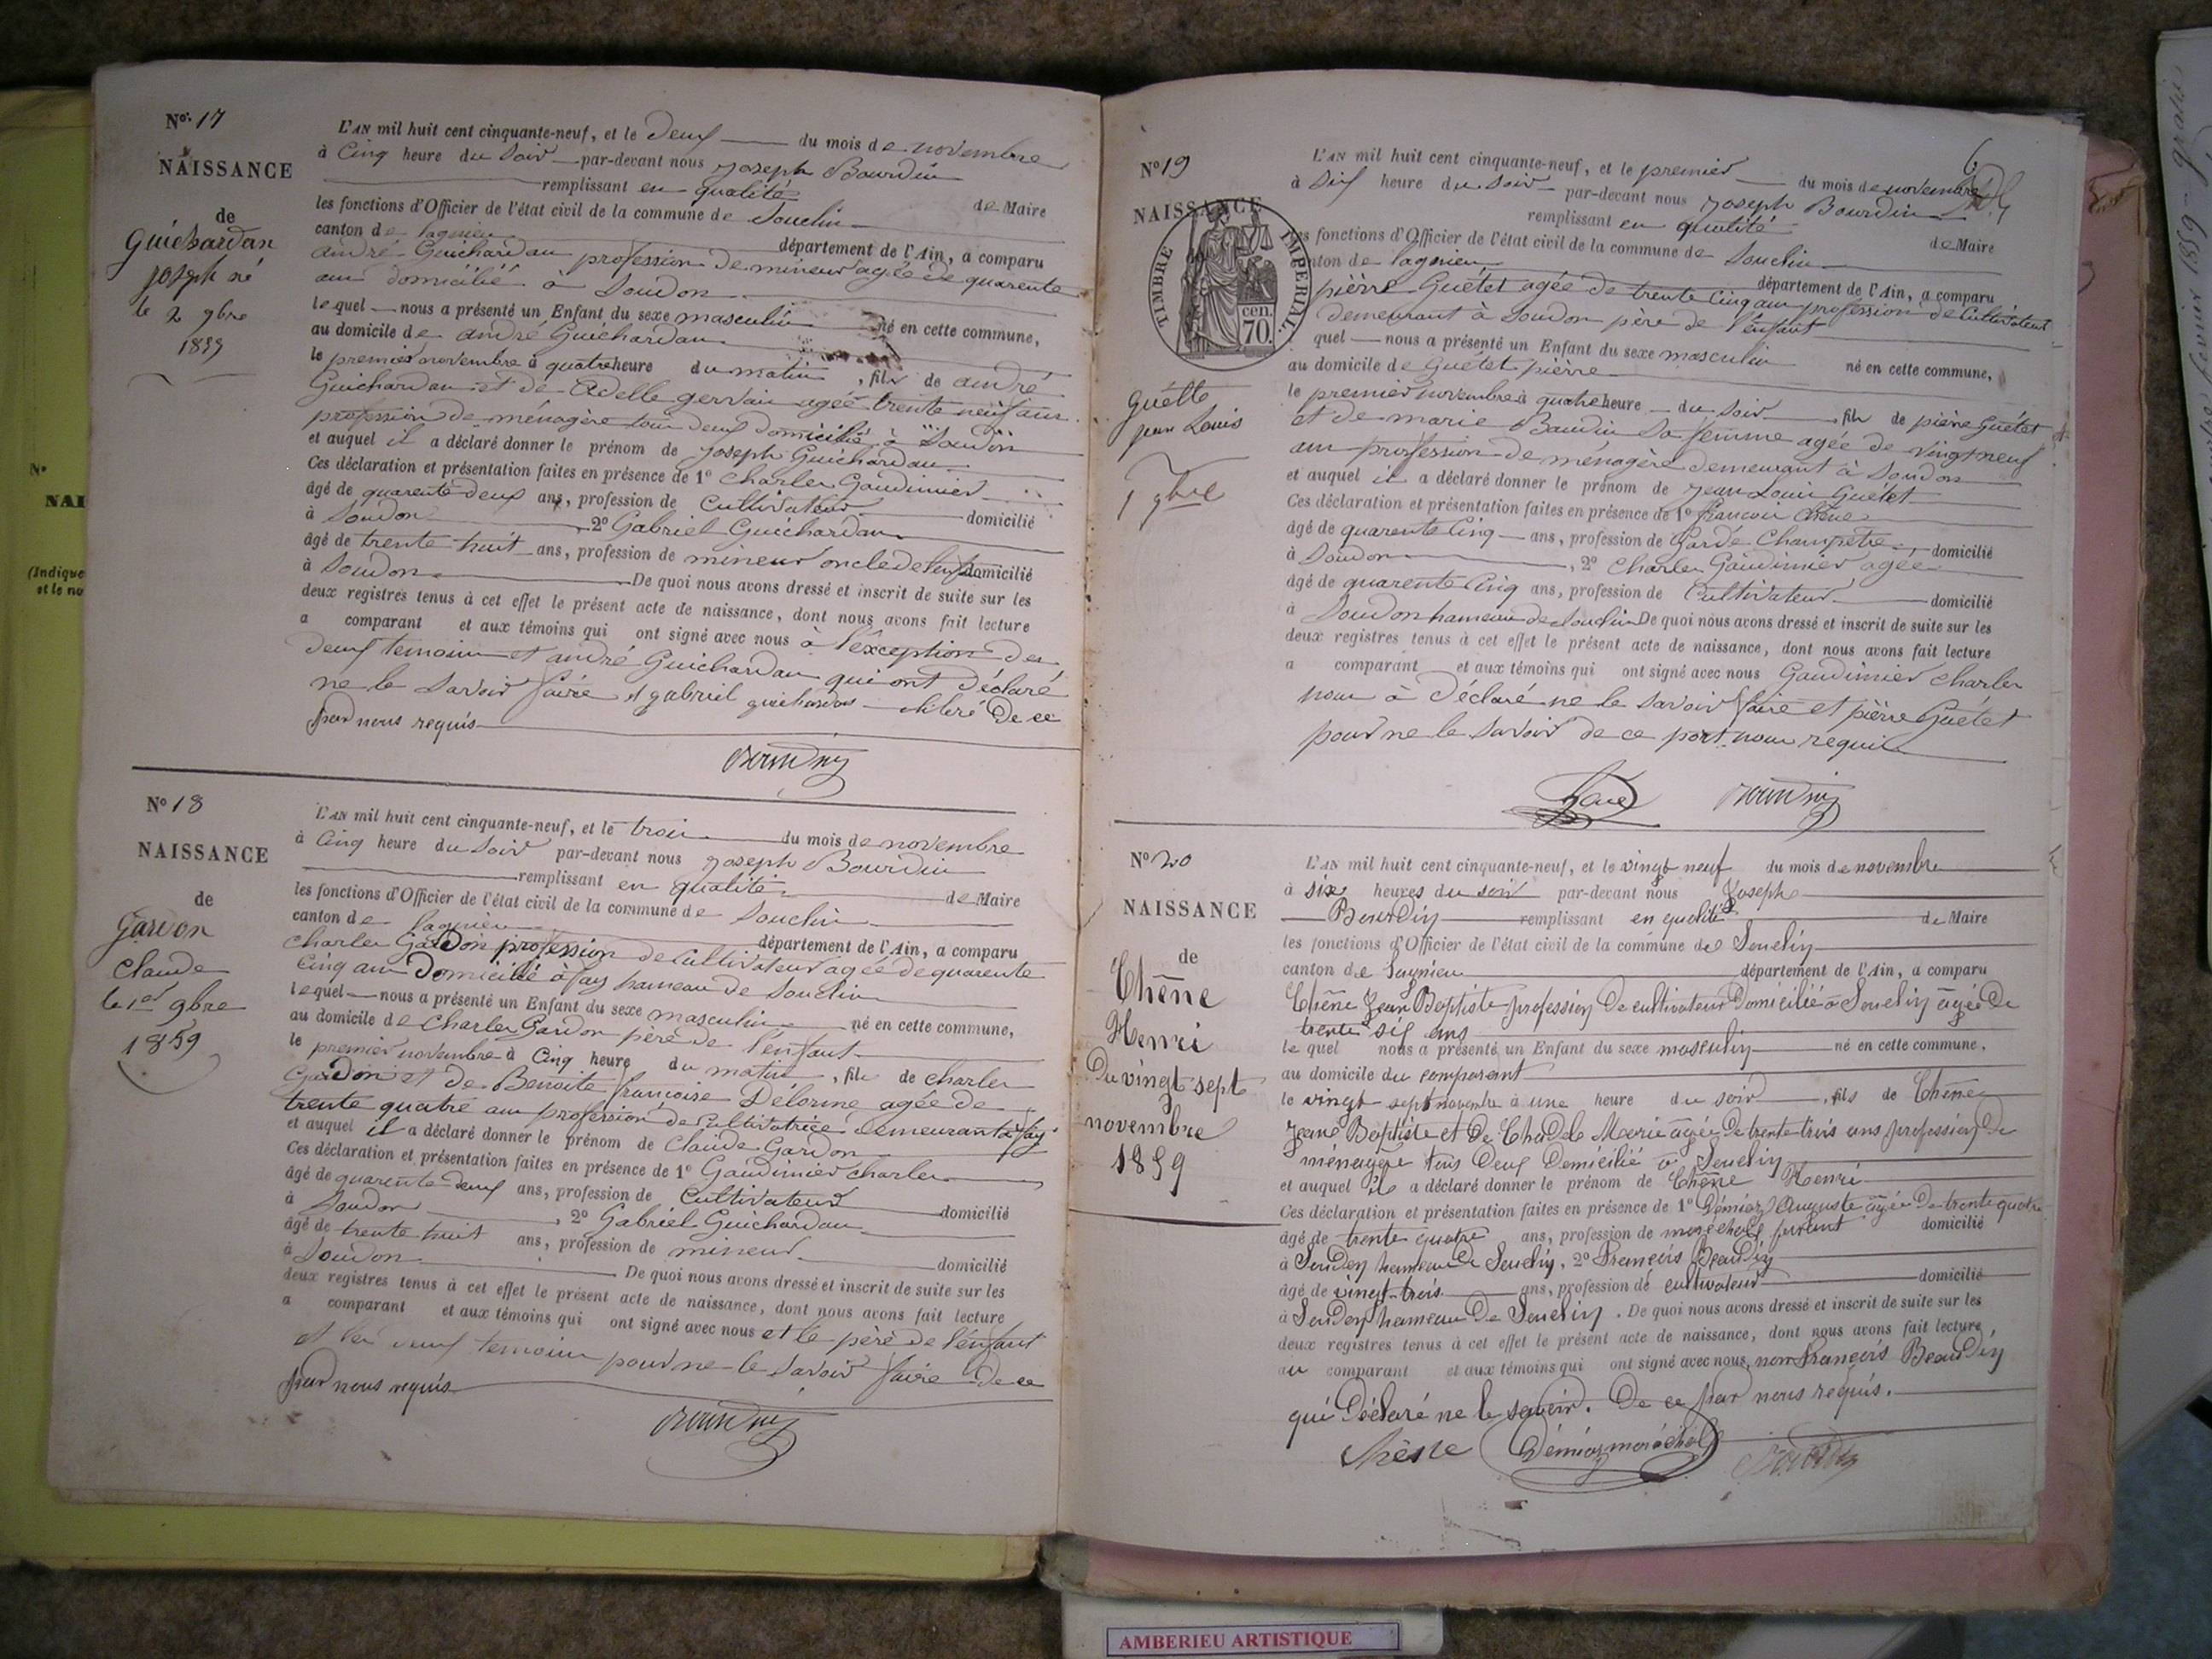 No. 17
NAISSANCE
de
Guichardan
Joseph né
le 2 9bre
1859
L'AN mil huit cent cinquante-neuf, et le deux du mois de novembre
à Cinq heure du Soir par-devant nous Joseph Bourdin
remplissant en qualité de Maire
les fonctions d'Officier de l'état civil de la commune de Souclin
canton de lagnieu département de l'Ain, a comparu
andré Guichardan profession de mineur agée de quarente
ans domicilié à Soudon
lequel nous a présenté un Enfant du sexe masculin né en cette commune,
au domicile de andré Guichardan
le premier novembre à quatre heure du matin, fils de andré
Guichardan et de Adelle gervais agée trente neuf ans
profession de ménagère tous deux domicilié à Soudon
et auquel il a déclaré donner le prénom de Joseph Guichardan
Ces déclaration et présentation faites en présence de 1º Charles Gaudinier
âgé de quarente deux ans, profession de Cultivateur domicilié
à Soudon, 2º Gabriel Guichardan
âgé de trente huit ans, profession de mineur oncle de l'enfant domicilié
à Soudon De quoi nous avons dressé et inscrit de suite sur les
deux registres tenus à cet effet le présent acte de naissance, dont nous avons fait lecture
a comparant et aux témoins qui ont signé avec nous à l'éxception des
deux temoins et andré Guichardan qui ont déclaré
ne le Savoir faire et gabriel guichardan de ce
par nous requis
Bourdin
No 18
NAISSANCE
de
Gardon
Claude
le 1er 9bre
1859
L'AN mil huit cent cinquante-neuf, et le trois du mois de novembre
à Cinq heure du Soir par-devant nous Joseph Bourdin
remplissant en qualité de Maire
les fonctions d'Officier de l'état civil de la commune de Souclin
canton de lagnieu département de l'Ain, a comparu
Charles Gardon profession de Cultivateur agée de quarente
Cinq ans Domicilié à fay hameau de Souclin
lequel nous a présenté un Enfant du sexe masculin né en cette commune,
au domicile de Charles Gardon père de l'enfant
le premier novembre à Cinq heure du matin, fils de Charles
Gardon et de Benoite françoise Délorme agée de
trente quatre ans profession de Cultivatrice demeurant à fay
et auquel il a déclaré donner le prénom de Claude Gardon
Ces déclaration et présentation faites en présence de 1º Gaudinier Charles
âgé de quarente deux ans, profession de Cultivateur domicilié
à Soudon, 2º Gabriel Guichardan
âgé de trente huit ans, profession de mineur domicilié
à Soudon De quoi nous avons dressé et inscrit de suite sur les
deux registres tenus à cet effet le présent acte de naissance, dont nous avons fait lecture
a comparant et aux témoins qui ont signé avec nous et le père de l'enfant
et les deux temoins pour ne le Savoir faire de ce
par nous requis
Bourdin
No 19
NAISSANCE
TIMBRE IMPERIAL.
70. cen.
Guétte
jean Louis
1 9bre
6
L'AN mil huit cent cinquante-neuf, et le premier du mois de novembre
à Six heure du Soir par-devant nous Joseph Bourdin
remplissant en qualité de Maire
les fonctions d'Officier de l'état civil de la commune de Souclin
canton de lagnieu département de l'Ain, a comparu
pièrre Guétet agée de trente Cinq ans profession de Cultivateur
demeurant à Soudon père de l'énfant
quel nous a présenté un Enfant du sexe masculin né en cette commune,
au domicile de Guétet pièrre
le premier novembre à quatre heure du Soir fils de pièrre Guétet
et de marie Baudin Sa femme agée de vingt neuf
ans profession de ménagère demeurant à Soudon
et auquel il a déclaré donner le prénom de Jean Louis Guétet
Ces déclaration et présentation faites en présence de 1º francois Chêne
âgé de quarente Cinq ans, profession de Garde Champètre, domicilié
à Soudon, 2º Charles Gaudinier agée
âgé de quarente Cinq ans, profession de Cultivateur domicilié
à Soudon hameau de Souclin De quoi nous avons dressé et inscrit de suite sur les
deux registres tenus à cet effet le présent acte de naissance, dont nous avons fait lecture
a comparant et aux témoins qui ont signé avec nous Gaudinier Charles
nous à déclaré ne le Savoir faire et pièrre Guétet
pour ne le Savoir de ce part nous réquis
Bourdin
No 20
NAISSANCE
de
Chêne
Henri
Du vingt sept
novembre
1859
L'AN mil huit cent cinquante-neuf, et le vingt neuf du mois de novembre
à six heures du soir par-devant nous Joseph
Bourdin remplissant en qualité de Maire
les fonctions d'Officier de l'état civil de la commune de Souclin
canton de Lagnieu département de l'Ain, a comparu
Chêne Jean Baptiste profession De cultivateur Domicilié à Souclin âgée De
trente six ans
le quel nous a présenté un Enfant du sexe masculin né en cette commune,
au domicile du comparant
le vingt sept novembre à une heure du soir, fils de Chêne
Jean Baptiste et De Marie âgée De trente trois ans profession De
ménagère tous Deux Domicilié à Souclin
et auquel il a déclaré donner le prénom de Chêne Henri
Ces déclaration et présentation faites en présence de 1º Démiaz Auguste âgée De trente quatre
âgé de trente quatre ans, profession de maréchal ferrant domicilié
à Soudon hameau De Souclin, 2º François Beaudin
âgé de vingt-trois ans, profession de cultivateur domicilié
à Soudon hameau De Souclin. De quoi nous avons dressé et inscrit de suite sur les
deux registres tenus à cet effet le présent acte de naissance, dont nous avons fait lecture
au comparant et aux témoins qui ont signé avec nous, non François Beaudin
qui Déclaré ne le savoir. De ce par nous requis.
Chêne Démiaz maréchal Bourdin
No
NAI
(Indique
et le no
AMBERIEU ARTISTIQUE